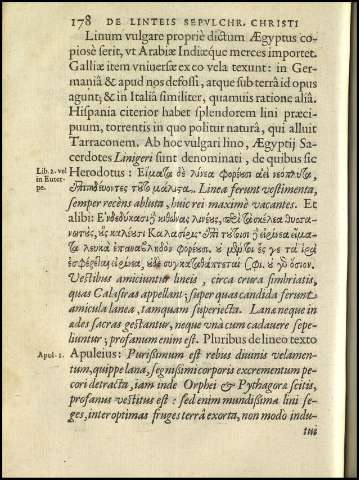 178 DE LINTEIS SEPVLCHR. CHRISTI
Linum vulgare propriè dictum Ægyptus co-
piosè serit, vt Arabiæ Indiæque merces importet.
Galliæ item vniuersæ ex eo vela texunt: in Ger-
maniâ & apud nos defossi, atque sub terrâ id opus
agunt; & in Italiâ similiter, quamuis ratione aliâ.
Hispania citerior habet splendorem lini præci-
puum, torrentis in quo politur naturâ, qui alluit
Tarraconem. Ab hoc vulgari lino, Ægyptij Sa-
cerdotes Linigeri sunt denominati, de quibus sic
Lib. 2. vel in Euter-pe.
Herodotus: Εἵματα δὲ λίνεα φορέουσι αἰεὶ νεόπλυτα,
ἐπιτηδεύοντες τοῦτο μάλιστα. Linea ferunt vestimenta,
semper recèns abluta, huic rei maximè vacantes. Et
alibi: Ἐνδεδύκασι κιθῶνας λινέους, περὶ τὰ σκέλεα θυσα-
νωτούς, οὓς καλέουσι Καλασίρις· ἐπὶ τούτοισι εἰρίνεα εἵμα-
τα λευκὰ ἐπαναβληδὸν φορέουσι. οὐ μέντοι ἔς γε τὰ ἱρὰ
ἐσφέρεται εἰρίνεα, οὐδὲ συγκαταθάπτεταί σφι. οὐ γὰρ ὅσιον.
Vestibus amiciuntur lineis, circa crura fimbriatis,
quas Calasiras appellant; super quas candida ferunt
amicula lanea, tamquam superiecta. Laneæ neque in
ædes sacras gestantur, neque vnà cum cadauere sepe-
liuntur; profanum enim est. Pluribus de lineo texto
Apol. 1.
Apuleius: Purissimum est rebus diuinis velamen-
tum, quippe lana, segnissimi corporis excrementum pe-
cori detracta, iam inde Orphei & Pythagoræ scitis,
profanus vestitus est: sed enim mundissima lini se-
ges, inter optimas fruges terrâ exorta, non modò indu-
tui